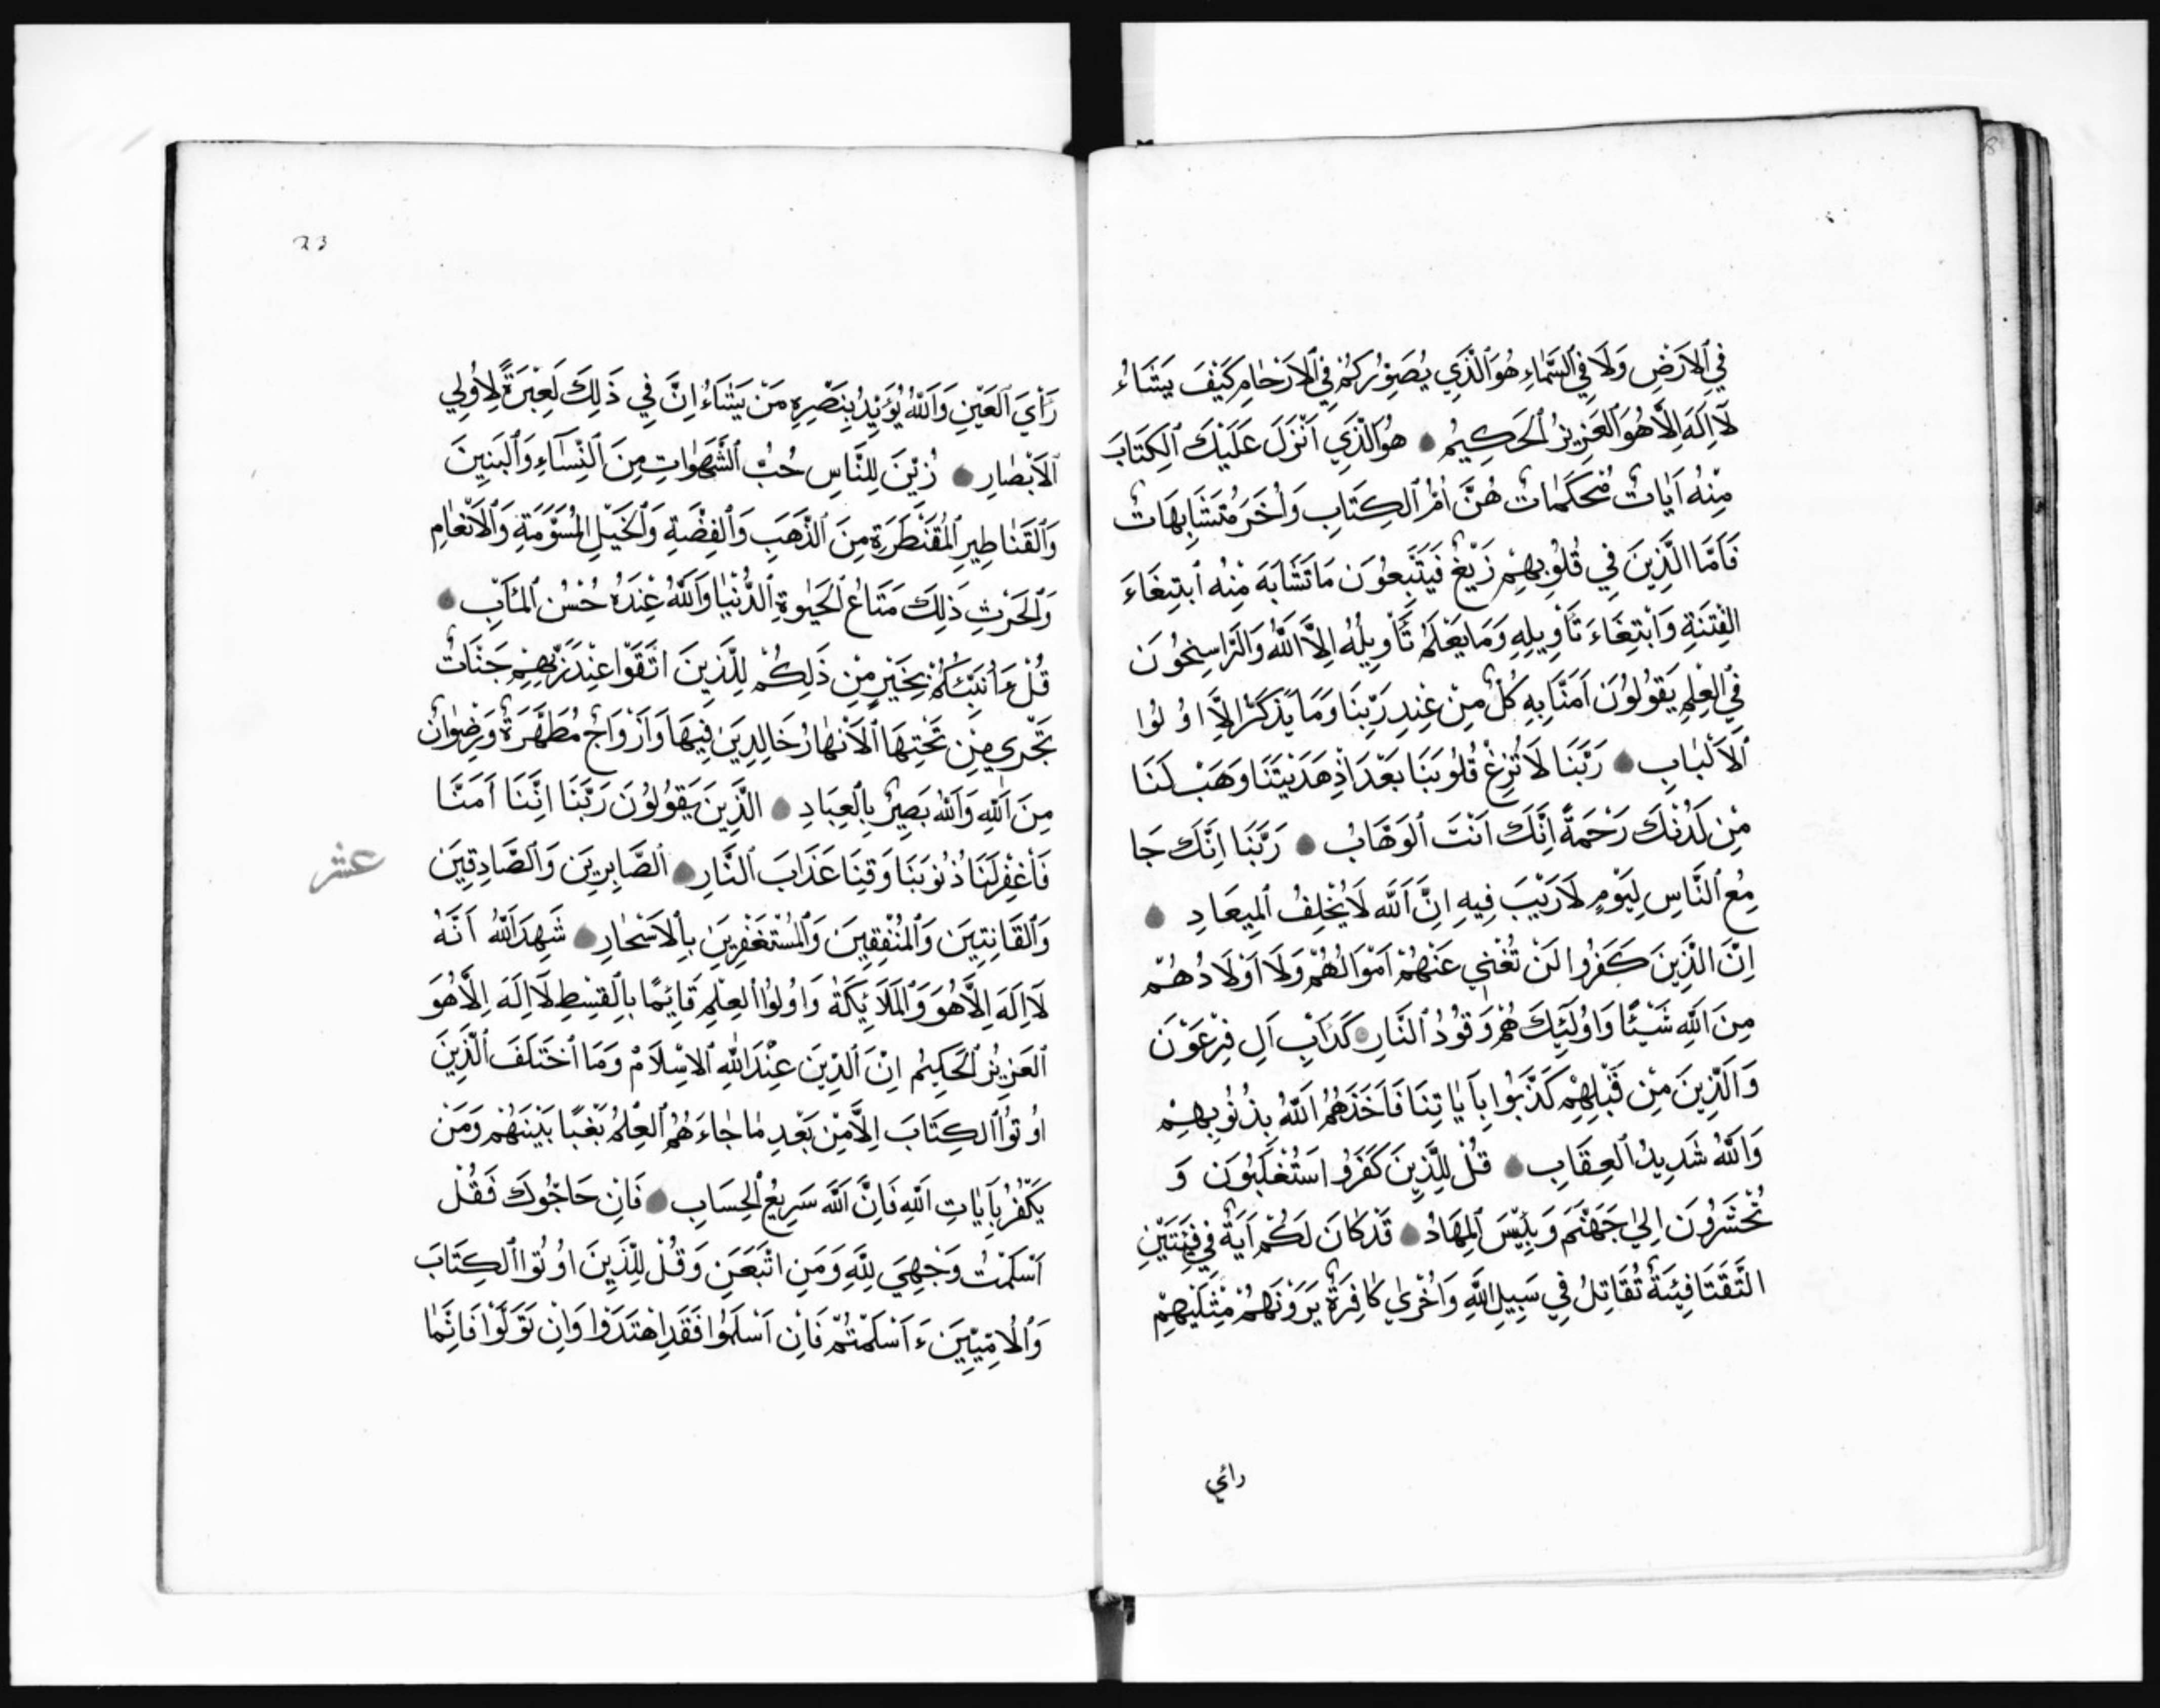 في الارض ولا في السماء هو الذي يصوركم في الارحام كيف يشاء
لا اله الا هو العزيز الحكيم هو الذي انزل عليك الكتاب
منه ايات محكمات هن ام الكتاب واخر متشابهات
فاما الذين في قلوبهم زيغ فيتبعون ما تشابه منه ابتغاء
الفتنة وابتغاء تأويله وما يعلم تأويله الا الله والراسخون
في العلم يقولون امنا به كل من عند ربنا وما يذكر الا اولوا
الالباب ربنا لا تزغ قلوبنا بعد اذ هديتنا وهب لنا
من لدنك رحمة انك انت الوهاب ربنا انك جا
مع الناس ليوم لا ريب فيه ان الله لا يخلف الميعاد
ان الذين كفروا لن تغني عنهم اموالهم ولا اولادهم
من الله شيئا واولئك هم وقود النار كداب آل فرعون
والذين من قبلهم كذبوا بآياتنا فاخذهم الله بذنوبهم
والله شديد العقاب قل للذين كفروا ستغلبون و
تحشرون الى جهنم وبئس المهاد قد كان لكم آية في فئتين
التقتا فئة تقاتل في سبيل الله واخرى كافرة يرونهم مثليهم
رائي
23
رأي العين والله يؤيد بنصره من يشاء ان في ذلك لعبرة لاولي
الابصار زين للناس حب الشهوات من النساء والبنين
والقناطير المقنطرة من الذهب والفضة والخيل المسومة والانعام
والحرث ذلك متاع الحيوة الدنيا والله عنده حسن المآب
قل ءأنبئكم بخير من ذلكم للذين اتقوا عند ربهم جنات
تجري من تحتها الانهار خالدين فيها وازواج مطهرة ورضوان
من الله والله بصير بالعباد الذين يقولون ربنا اننا امنا
فاغفر لنا ذنوبنا وقنا عذاب النار الصابرين والصادقين
عشر
والقانتين والمنفقين والمستغفرين بالاسحار شهد الله انه
لا اله الا هو والملائكة واولوا العلم قائما بالقسط لا اله الا هو
العزيز الحكيم ان الدين عند الله الاسلام وما اختلف الذين
اوتوا الكتاب الا من بعد ما جاءهم العلم بغيا بينهم ومن
يكفر بآيات الله فان الله سريع الحساب فان حاجوك فقل
اسلمت وجهي لله ومن اتبعن وقل للذين اوتوا الكتاب
والاميين ءاسلمتم فان اسلموا فقد اهتدوا وان تولوا فانما